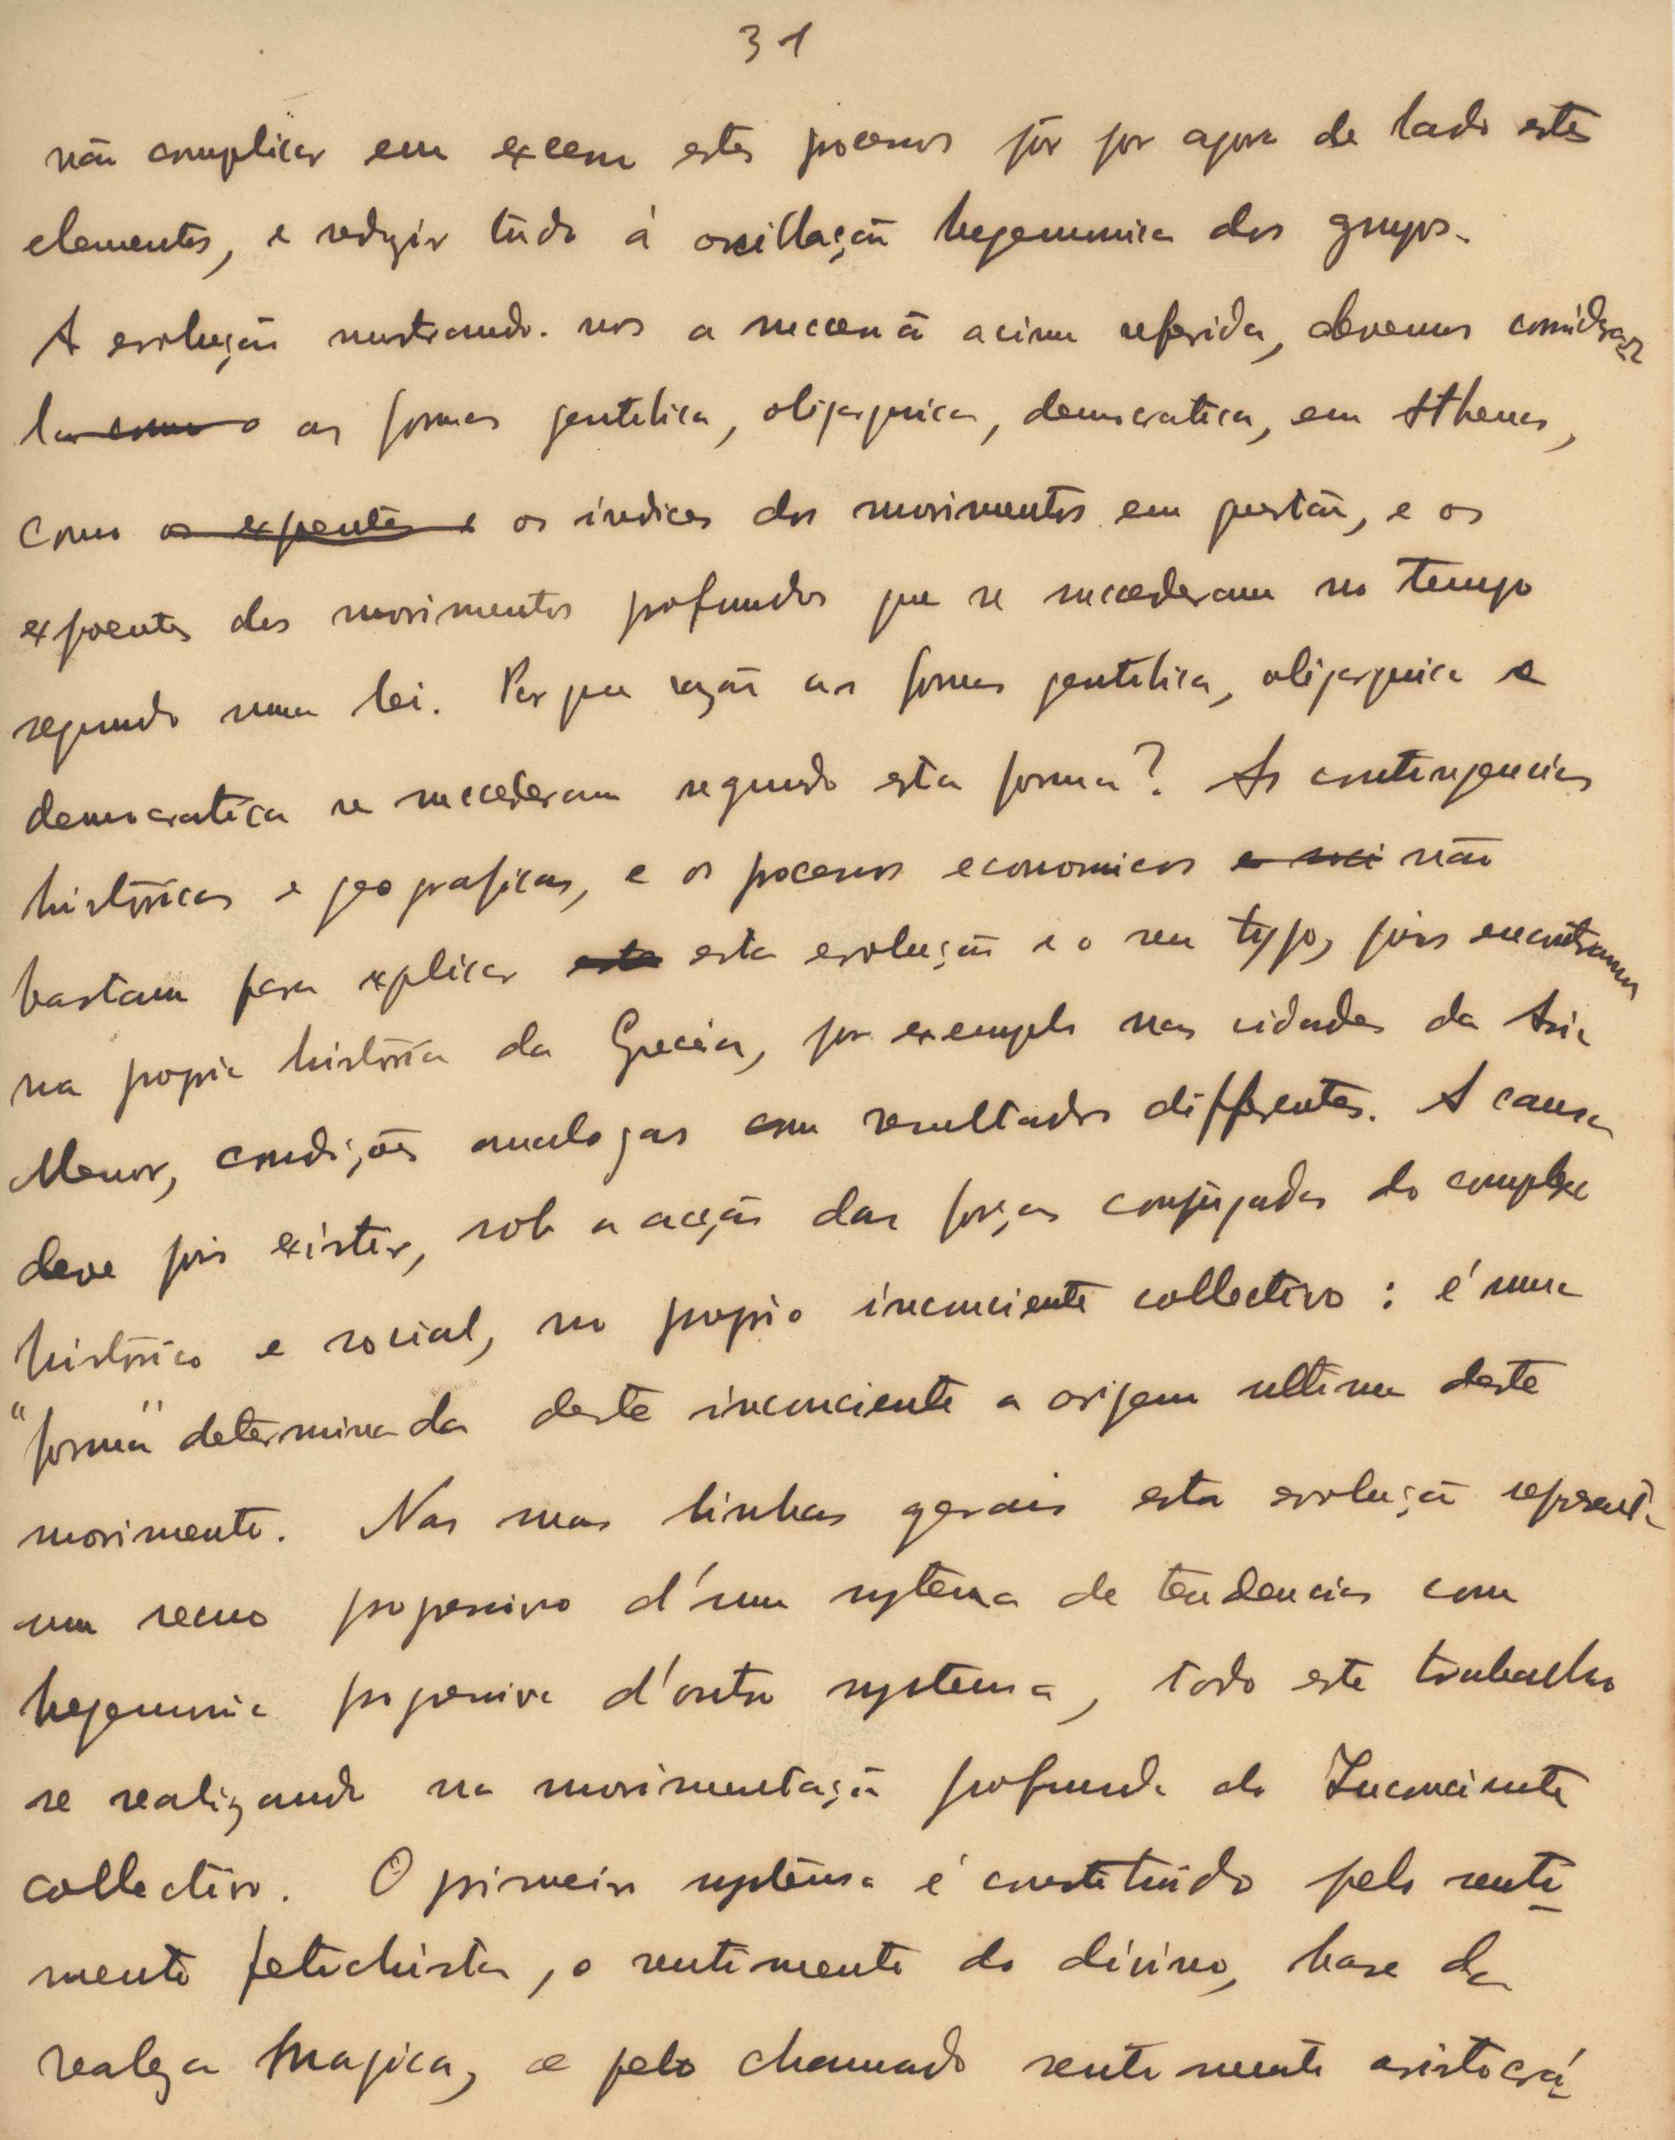 31
não complicar em excesso estes processos pôr por agora de lado estes
elementos, e reduzir tudo á oscillação hegemonica dos grupos.
A evolução mostrando-nos a successão acima referida, devemos considerar
la como o as formas gentilica, oligarquica, democratica, em Athenas,
como os expoentes e os indices dos movimentos em questão, e os
expoentes dos movimentos profundos que se succederam no tempo
segundo uma lei. Por que razão as formas gentilica, oligarquica e
democratica se succederam segundo esta forma? As contingencias
históricas e geograficas, e os processos economicos e soci não
bastam para explicar esta esta evolução e o seu typo, pois encontramos
na propria história da Grecia, por exemplo nas cidades da Asia
Menor, condições analogas com resultados differentes. A causa
deve pois existir, sob a acção das forças conjugadas do complexo
histórico e social, no proprio inconsciente collectivo: é numa
"forma" determinada deste inconsciente a origem ultima deste
movimento. Nas suas linhas gerais esta evolução representa
um recuo progressivo d'um systema de tendencias com
hegemonia progressiva d'outro systema, todo este trabalho
se realizando na movimentação profunda do Inconsciente
collectivo. O primeiro systema é constituido pelo senti-
mento fetichista, o sentimento do divino, base da
realeza magica, e pelo chamado sentimento aristocrá-